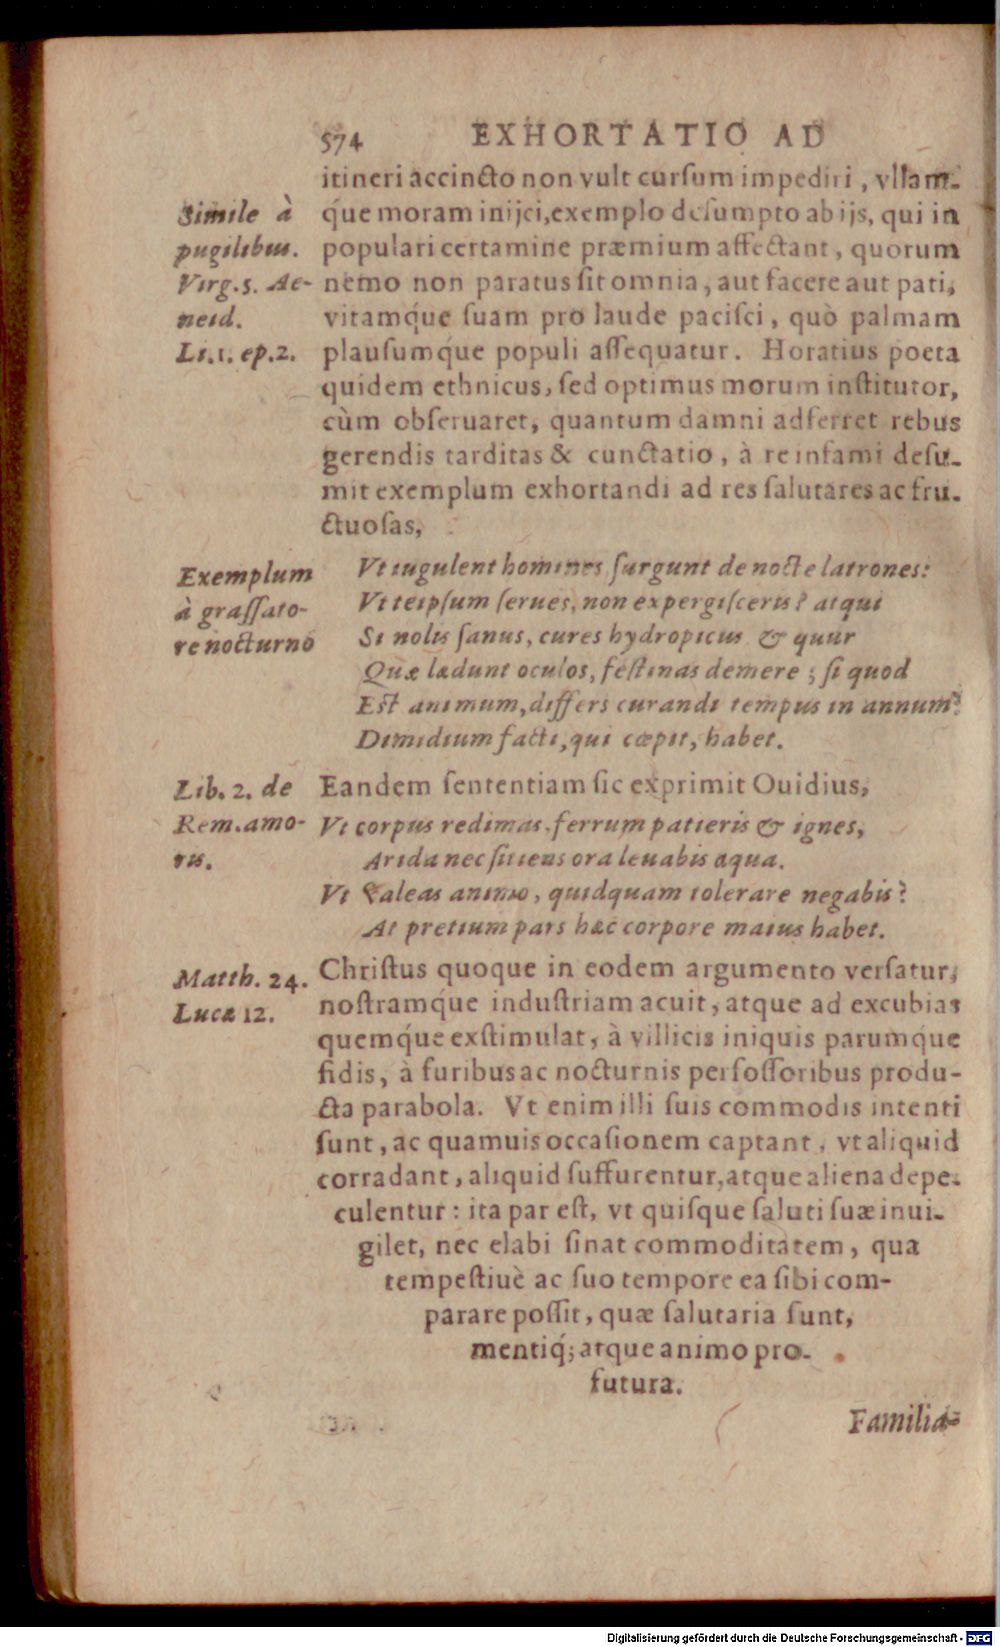 574 EXHORTATIO AD
itineri accincto non vult cursum impediri, vllam-
q́ue moram inijci, exemplo desumpto ab ijs, qui in
populari certamine præmium affectant, quorum
nemo non paratus sit omnia, aut facere aut pati,
vitamq́ue suam pro laude pacisci, quò palmam
plausumq́ue populi assequatur. Horatius poeta
quidem ethnicus, sed optimus morum institutor,
cùm obseruaret, quantum damni adferret rebus
gerendis tarditas & cunctatio, à re infami desu-
mit exemplum exhortandi ad res salutares ac fru-
ctuosas,
Simile à
pugilibus.
Virg. 5. Ae-
neid.
Li. 1. ep. 2.
Vt iugulent homines surgunt de nocte latrones:
Vt teipsum serues, non expergisceris? atqui
Si nolis sanus, cures hydropicus & quur
Quæ lædunt oculos, festinas demere; si quod
Est animum, differs curandi tempus in annum?
Dimidium facti, qui cœpit, habet.
Exemplum
à grassato-
re nocturno
Eandem sententiam sic exprimit Ouidius,
Vt corpus redimas, ferrum patieris & ignes,
Arida nec sitiens ora leuabis aqua.
Vt valeas animo, quidquam tolerare negabis?
At pretium pars hæc corpore maius habet.
Lib. 2. de
Rem. amo-
ris.
Christus quoque in eodem argumento versatur,
nostramq́ue industriam acuit, atque ad excubias
quemq́ue exstimulat, à villicis iniquis parumque
fidis, à furibus ac nocturnis perfossoribus produ-
cta parabola. Vt enim illi suis commodis intenti
sunt, ac quamuis occasionem captant, vt aliquid
corradant, aliquid suffurentur, atque aliena depe-
culentur: ita par est, vt quisque saluti suæ inui-
gilet, nec elabi sinat commoditatem, qua
tempestiuè ac suo tempore ea sibi com-
parare possit, quæ salutaria sunt,
mentiq́; atque animo pro-
futura.
Matth. 24.
Lucæ 12.
Familia-
Digitalisierung gefördert durch die Deutsche Forschungsgemeinschaft - DFG